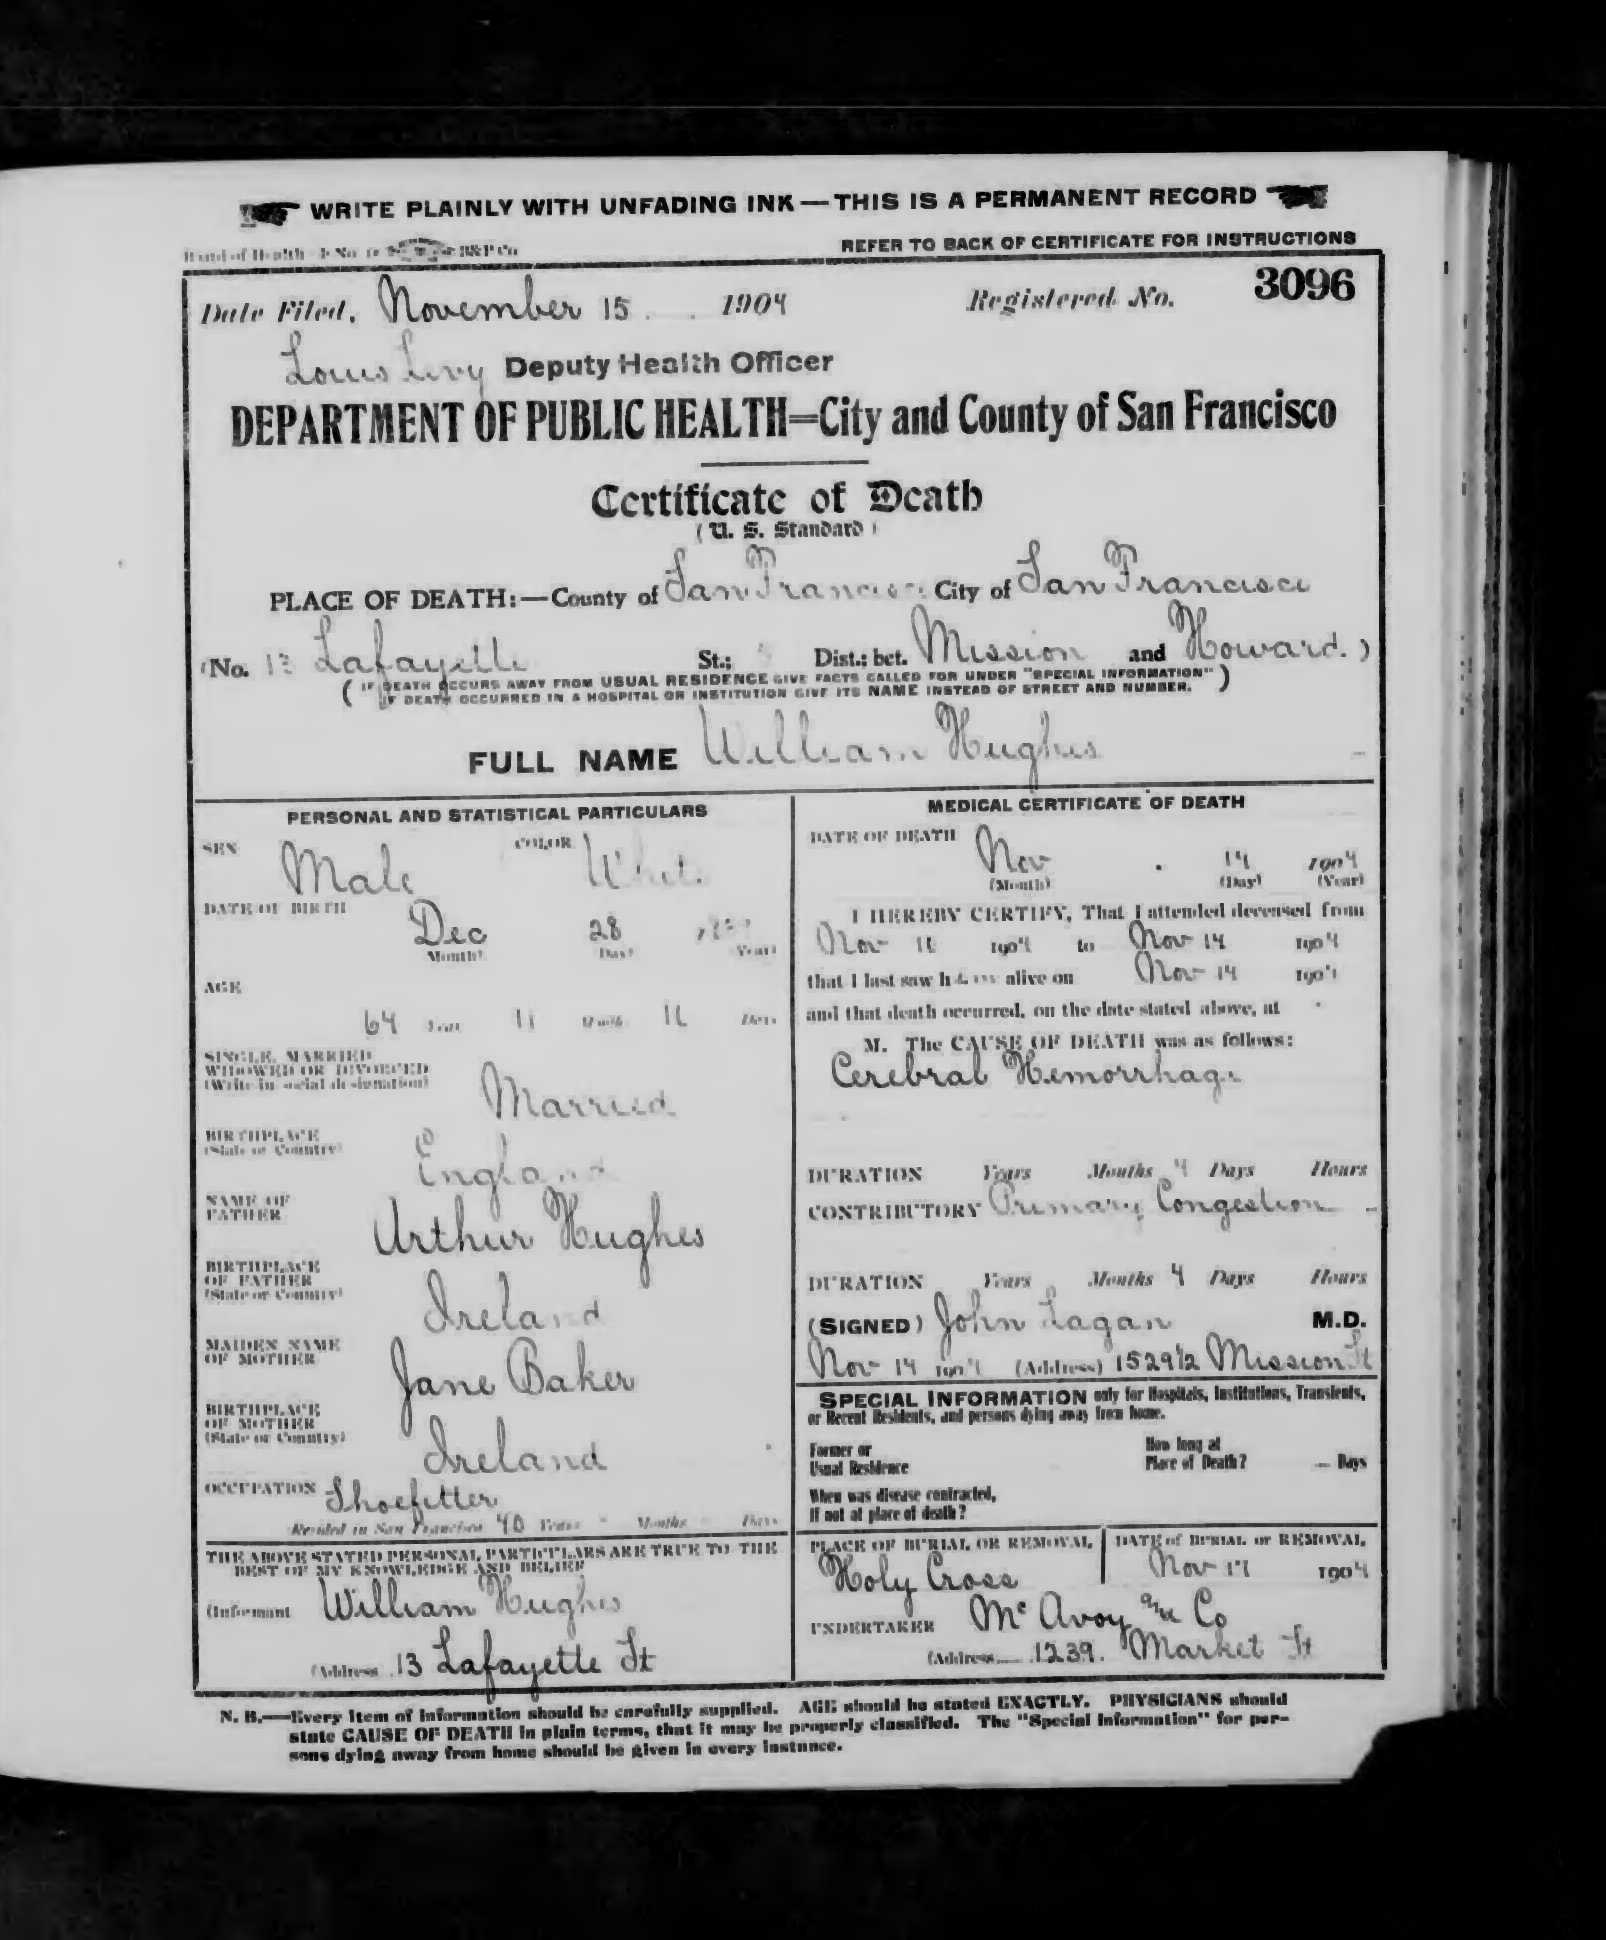 WRITE PLAINLY WITH UNFADING INK — THIS IS A PERMANENT RECORD
Board of Health B&P Co
REFER TO BACK OF CERTIFICATE FOR INSTRUCTIONS
Date Filed, November 15 1904 Registered No. 3096
Louis Levy Deputy Health Officer
DEPARTMENT OF PUBLIC HEALTH=City and County of San Francisco
Certificate of Death
(U. S. Standard)
PLACE OF DEATH:—County of San Francisco City of San Francisco
(No. 13 Lafayette St.; Dist.; bet. Mission and Howard.)
(IF DEATH OCCURS AWAY FROM USUAL RESIDENCE GIVE FACTS CALLED FOR UNDER "SPECIAL INFORMATION"
IF DEATH OCCURRED IN A HOSPITAL OR INSTITUTION GIVE ITS NAME INSTEAD OF STREET AND NUMBER.)
FULL NAME William Hughes
PERSONAL AND STATISTICAL PARTICULARS
SEX Male COLOR White
DATE OF BIRTH
Dec 28
(Month) (Day) (Year)
AGE
64 Years 11 Months Days
SINGLE, MARRIED
WIDOWED OR DIVORCED
(Write in social designation)
Married
BIRTHPLACE
(State or Country)
England
NAME OF
FATHER
Arthur Hughes
BIRTHPLACE
OF FATHER
(State or Country)
Ireland
MAIDEN NAME
OF MOTHER
Jane Baker
BIRTHPLACE
OF MOTHER
(State or Country)
Ireland
OCCUPATION Shoefitter
Resided in San Francisco 40 Years Months Days
THE ABOVE STATED PERSONAL PARTICULARS ARE TRUE TO THE
BEST OF MY KNOWLEDGE AND BELIEF
(Informant William Hughes
(Address 13 Lafayette St
MEDICAL CERTIFICATE OF DEATH
DATE OF DEATH
Nov 14 1904
(Month) (Day) (Year)
I HEREBY CERTIFY, That I attended deceased from
Nov 11 1904 to Nov 14 1904
that I last saw him alive on Nov 14 1904
and that death occurred, on the date stated above, at
M. The CAUSE OF DEATH was as follows:
Cerebral Hemorrhage
DURATION Years Months 4 Days Hours
CONTRIBUTORY Primary Congestion
DURATION Years Months 4 Days Hours
(SIGNED) John Lagan M.D.
Nov 14 1904 (Address) 1529 1/2 Mission St
SPECIAL INFORMATION only for Hospitals, Institutions, Transients,
or Recent Residents, and persons dying away from home.
Former or
Usual Residence
How long at
Place of Death? Days
When was disease contracted,
If not at place of death?
PLACE OF BURIAL OR REMOVAL
Holy Cross
DATE of BURIAL or REMOVAL
Nov 17 1904
UNDERTAKER Mc Avoy and Co
(Address 1239. Market St
N. B.—Every item of information should be carefully supplied. AGE should be stated EXACTLY. PHYSICIANS should
state CAUSE OF DEATH in plain terms, that it may be properly classified. The "Special Information" for per-
sons dying away from home should be given in every instance.